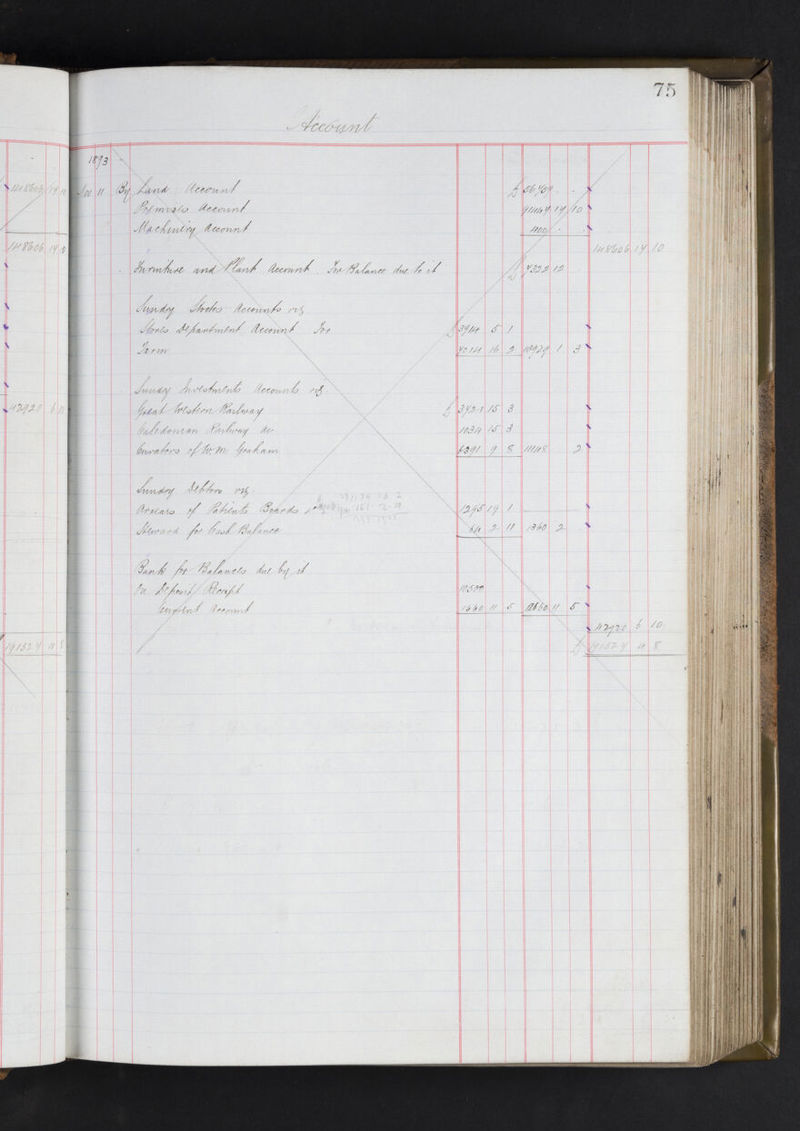 75
Account
1893
148606 14 10
Nov 11 By Land Account £ 56709 - -
Premises Account 91464 14 10
Machinery Account
148606 14 10
148606 14 10
Furniture and Plant Account For Balance due to it £ 7322 12
Sunday Stores Accounts viz
Stores Department Account For £ 3914 5 1
Farm 7014 16 2 10929 1 3
Sunday Investments Accounts viz
42920 6 10
Great Western Railway £ 3721 15 3
Caledonian Railway do 1034 15 3
Curators of Wm Graham 6391 9 8 11148 2
Sunday Debtors viz
Arrears of Patients Boards 1295 19 1
Steward for Cash Balance 64 2 11 1360 2
Bank for Balances due by it
On Deposit Receipt 10500
Current Account 1660 11 5 12160 11 5
42920 6 10
£ 191527 1 8
191527 1 8